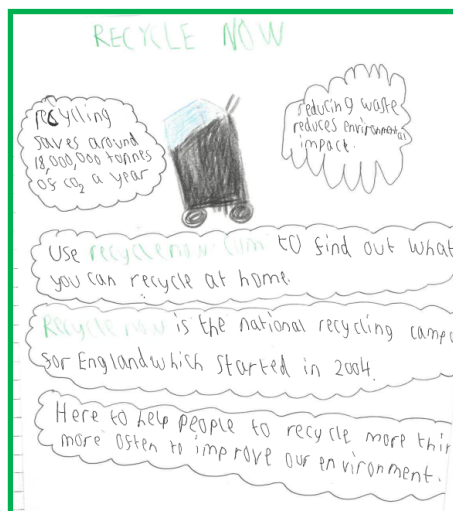 RECYCLE NOW
recycling
saves around
18,000,000 tonnes
of CO₂ a year
reducing waste
reduces environmental
impact.
Use recyclenow.com to find out what
you can recycle at home.
Recycle now is the national recycling
for England which started in 2004.
Here to help people to recycle more
more often to improve our environment.